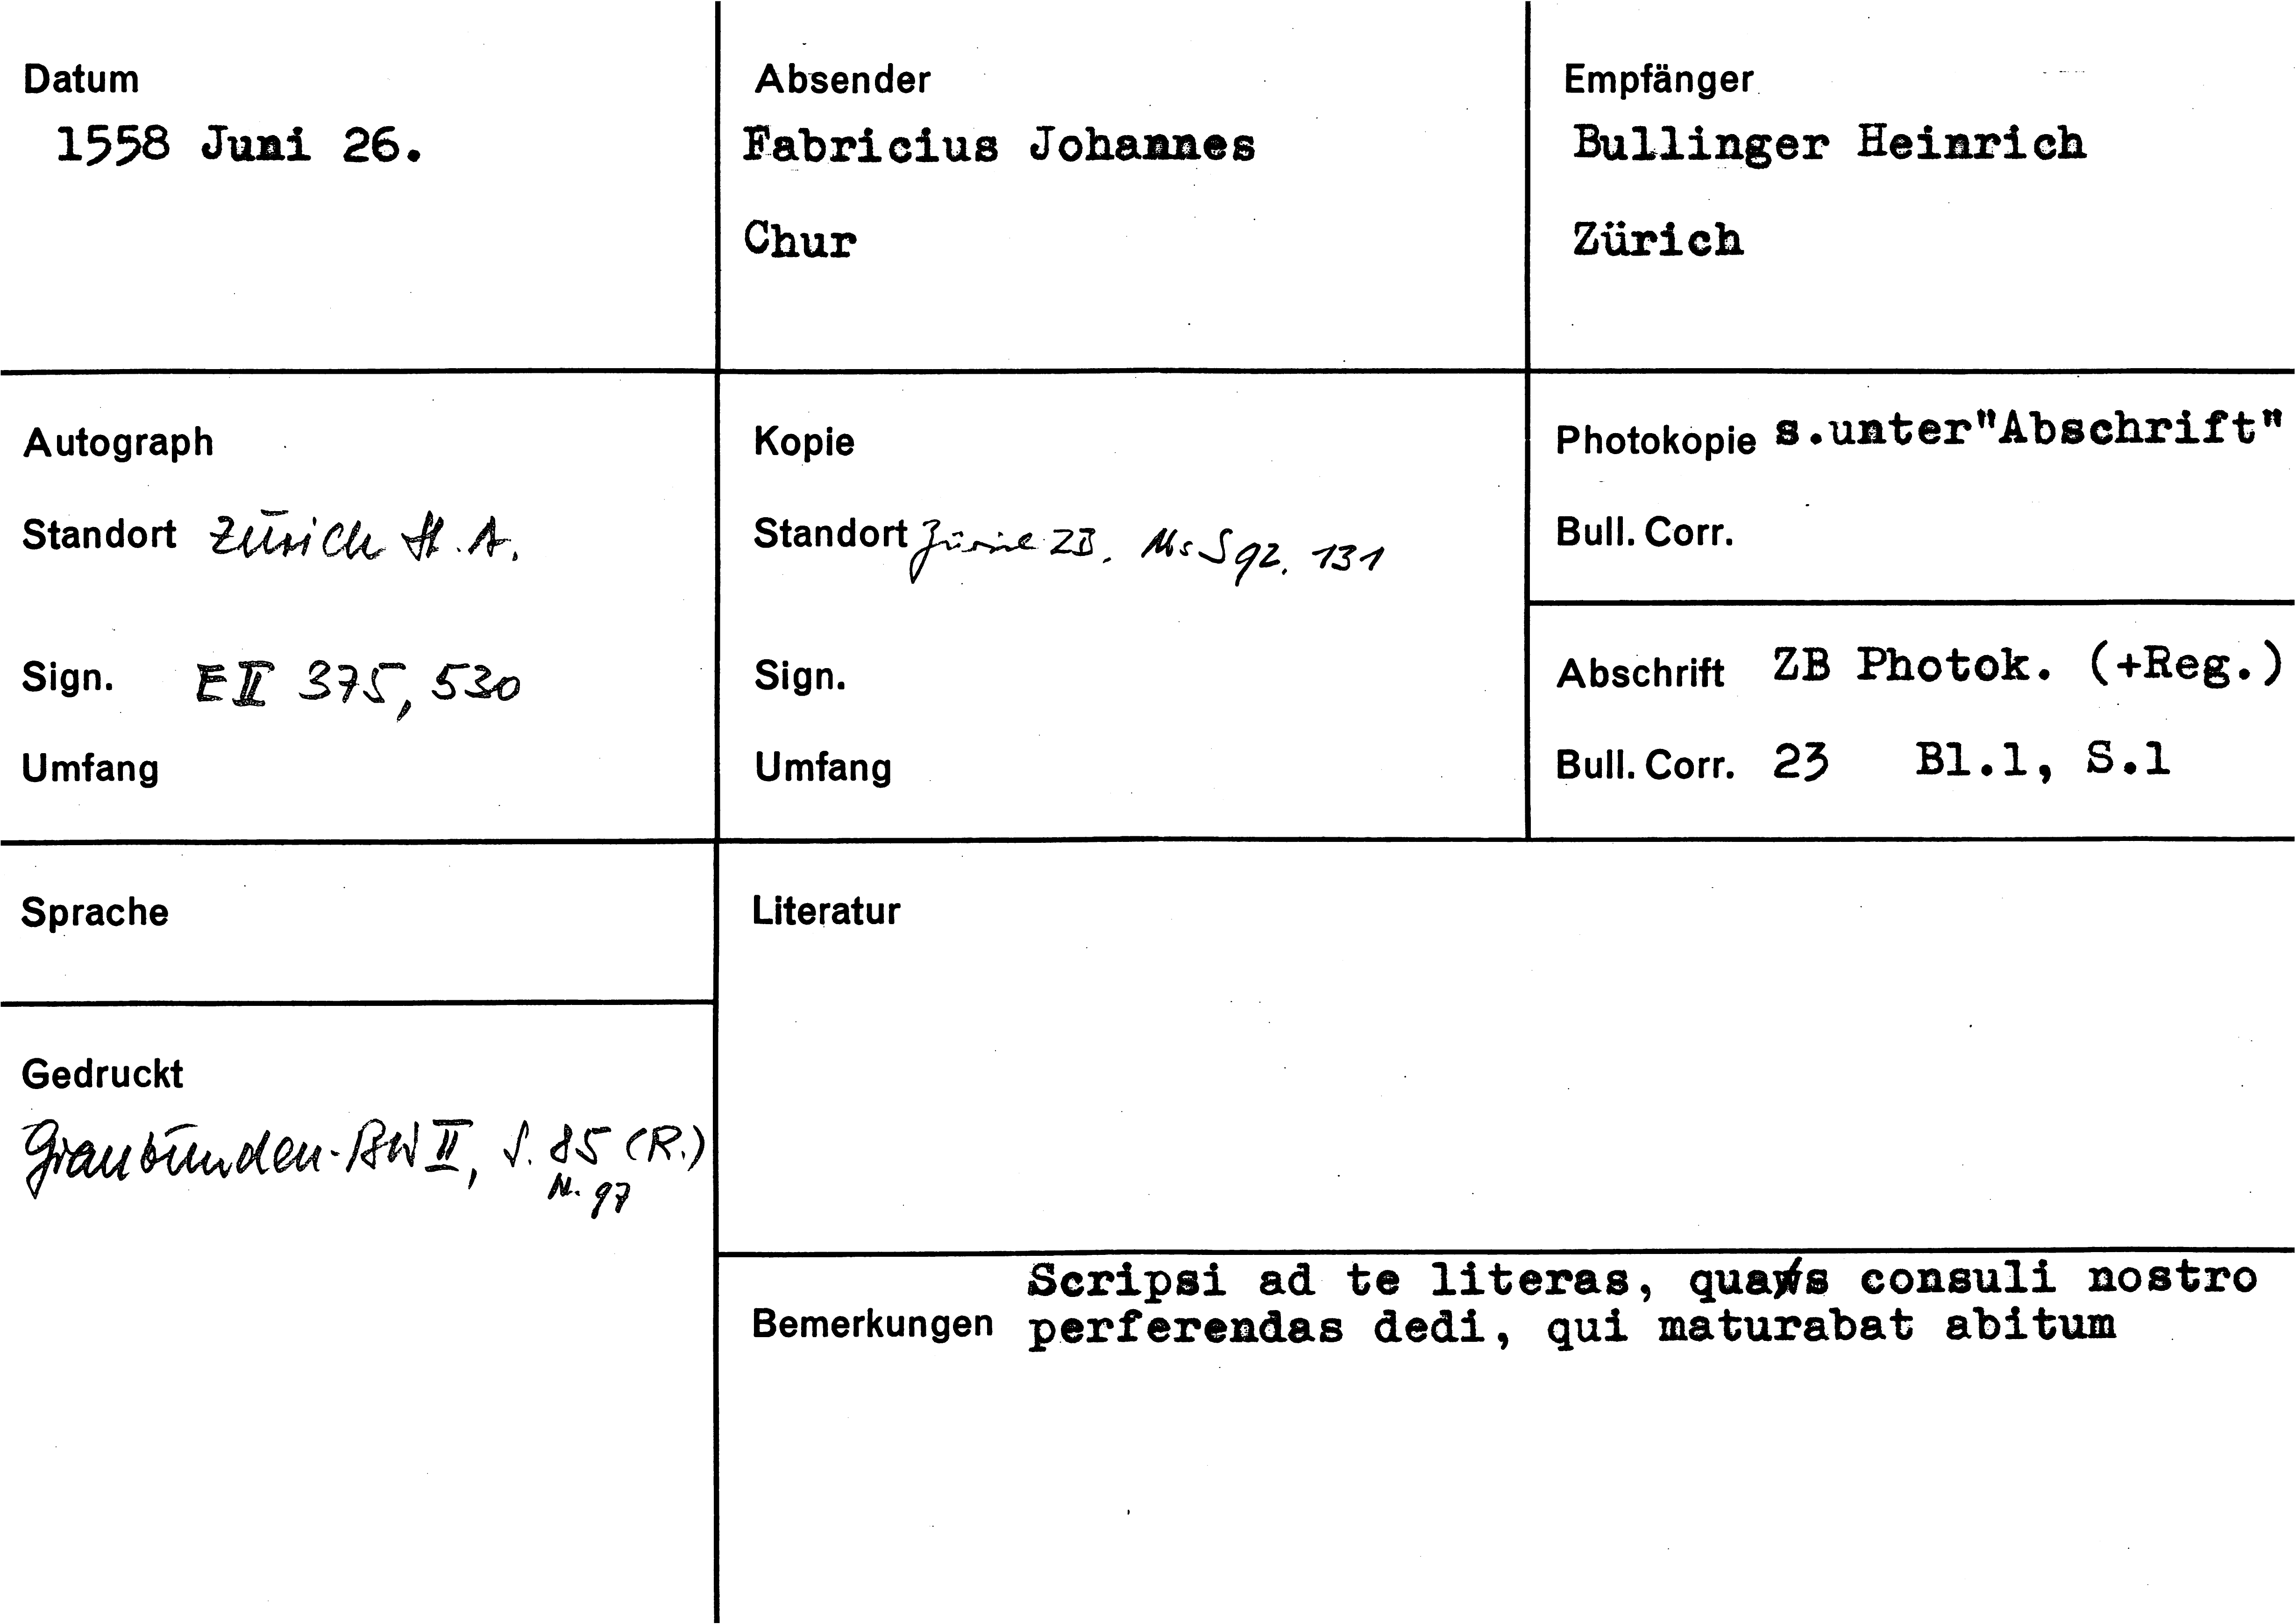 Datum
1558 Juni 26.
Absender
Fabricius Johannes
Chur
Empfänger
Bullinger Heinrich
Zürich
Autograph
Standort Zürich St. A.
Sign. E II 375, 530
Umfang
Kopie
Standort Zürich ZB. Ms S 92, 131
Sign.
Umfang
Photokopie s.unter"Abschrift"
Bull. Corr.
Abschrift ZB Photok. (+Reg.)
Bull. Corr. 23 Bl.1, S.1
Sprache
Gedruckt
Graubünden-BW II, S. 85 (R.)
N. 97
Literatur
Bemerkungen
Scripsi ad te literas, quas consuli nostro
perferendas dedi, qui maturabat abitum